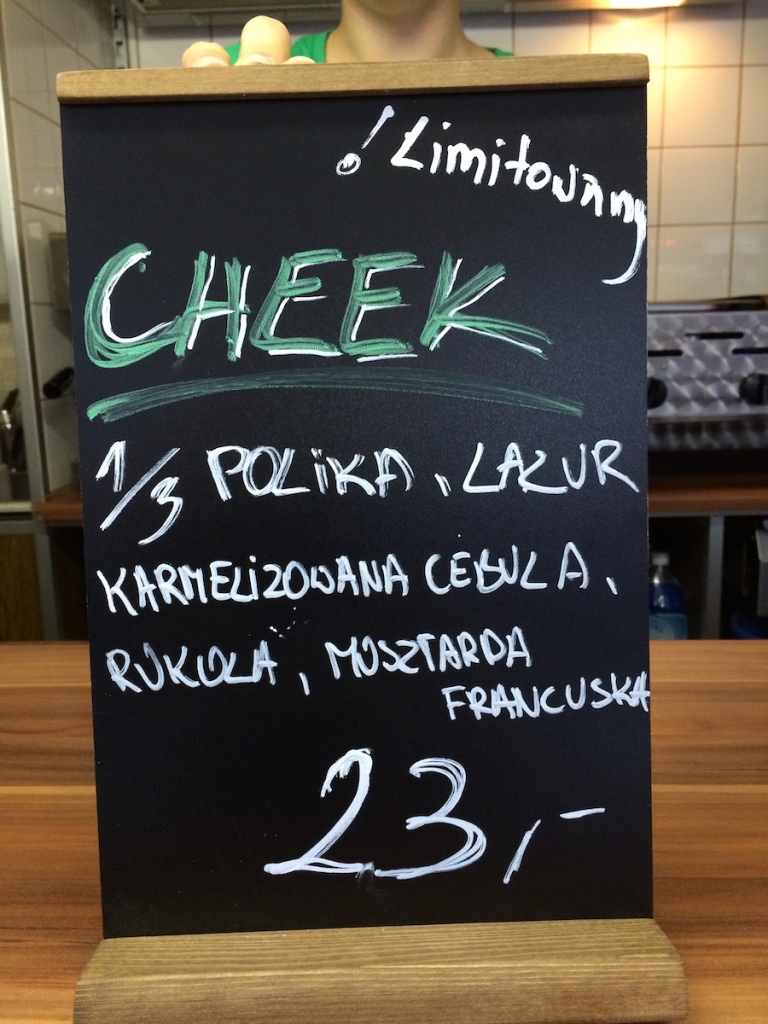 ! Limitowany
CHEEK
1/3 POLIKA, LAZUR
KARMELIZOWANA CEBULA,
RUKOLA, MUSZTARDA
FRANCUSKA
23,-